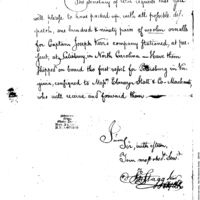 The Secretary of War requests that you
will please to have packed up, with all possible dis-
patch, one hundred & ninety pairs of woolen overalls
for Captain Joseph Kerr's company stationed, at pre-
sent, at Fittsburg, in North Carolina — Have them
shipped on board the first vessel for Petersburg in Vir-
ginia, consigned to Messrs Ebenezer Stott & Co. Merchants,
who will receive and forward them
I am
Sir, with esteem,
Your most obed. Servt